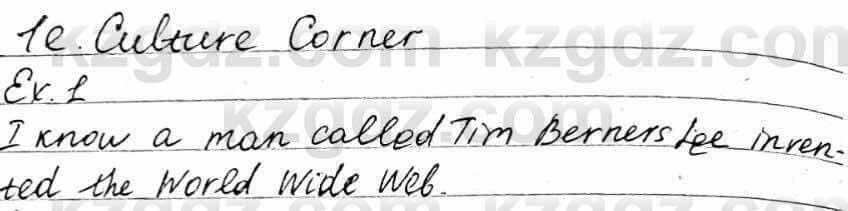 1e. Culture Corner
Ex. 1
I know a man called Tim Berners Lee inven-
ted the World Wide Web.
kzgdz.com kzgdz.com
kzgdz.com